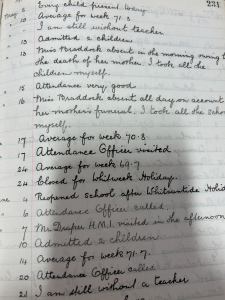 231
Every child present
May 8 Average for week 71.3
10 I am still without teacher
13 Admitted 2 children
13 Miss Braddock absent in the morning owing to
the death of her mother. I took all the
children myself.
15 Attendance very good
16 Miss Braddock absent all day on account
her mother's funeral. I took all the school
myself.
17 Average for week 70.3
17 Attendance Officer visited
24 Average for week 69.7
24 Closed for Whitweek Holiday.
4 Reopened school after Whitsuntide Holid
6 Attendance Officer called
7 Mr Draper H.M.I. visited in the afternoon
10 Admitted 2 children
14 Average for week 71.7.
20 Attendance Officer called
21 I am still without a teacher